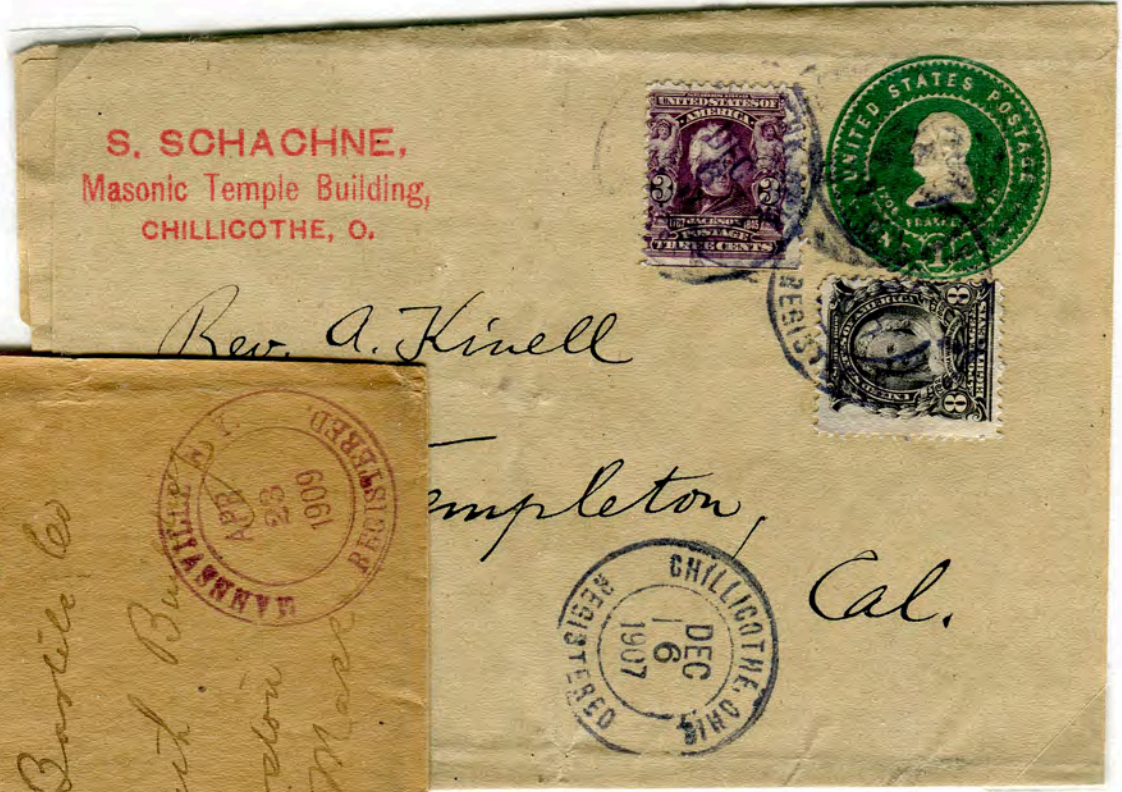 S. SCHACHNE,
Masonic Temple Building,
CHILLICOTHE, O.
UNITED STATES OF
AMERICA
3 3
1767 JACKSON 1845
POSTAGE
THREE CENTS
UNITED STATES POSTAGE
1
8 8
EIGHT CENTS
REGIST
Rev. A. Kinell
empleton,
Cal.
CHILLICOTHE, OHIO
DEC
16
1907
REGISTERED
MANNSVILLE
REGISTERED.
APR
23
1909
Co
Mass